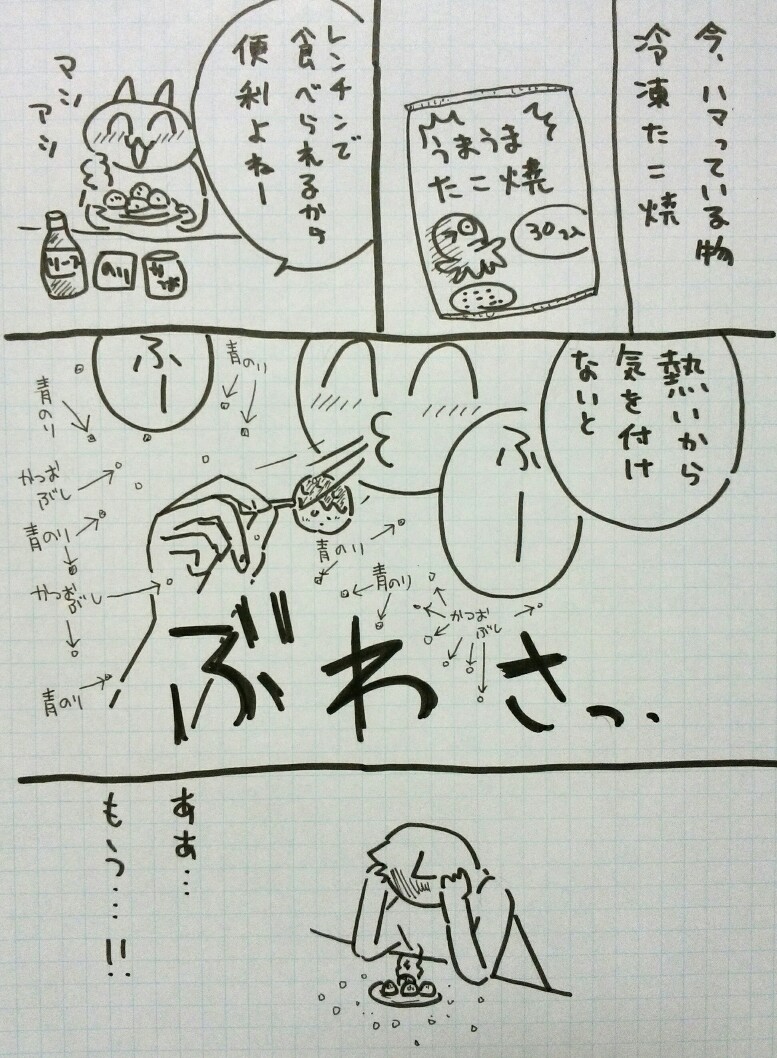 今、ハマっている物
冷凍たこ焼
うまうま
たこ焼
30コ入
レンチンで
食べられるから
便利よねー
マシ
アシ
ソース
のり
かつお
熱いから
気を付け
ないと
ふー
ふー
青のり
青のり
かつお
ぶし
青のり
かつお
ぶし
青のり
青のり
青のり
かつお
ぶし
ぶわさっ
ああ…
もうっ…!!